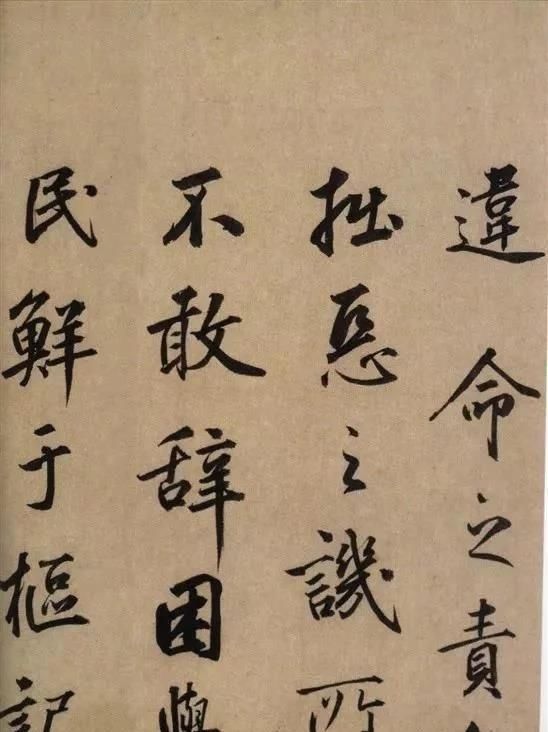 違命之責
拙惡之譏所
不敢辞困學
民鮮于樞記